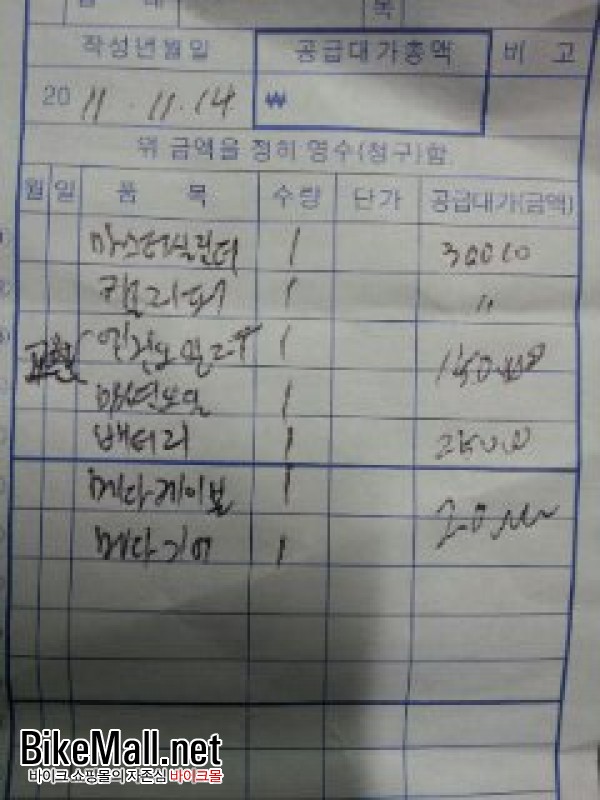 작성년월일 공급대가총액 비 고
20 11 . 11 . 14 ₩
위 금액을 정히 영수(청구)함
월 일 품 목 수량 단가 공급대가(금액)
마스터실린더 1 30000
캘리퍼 1 〃
교환 엔진오일 1
1
밧데리 1
메다케이블 1
메다기어 1
BikeMall.net
바이크 쇼핑몰의 자존심 바이크몰